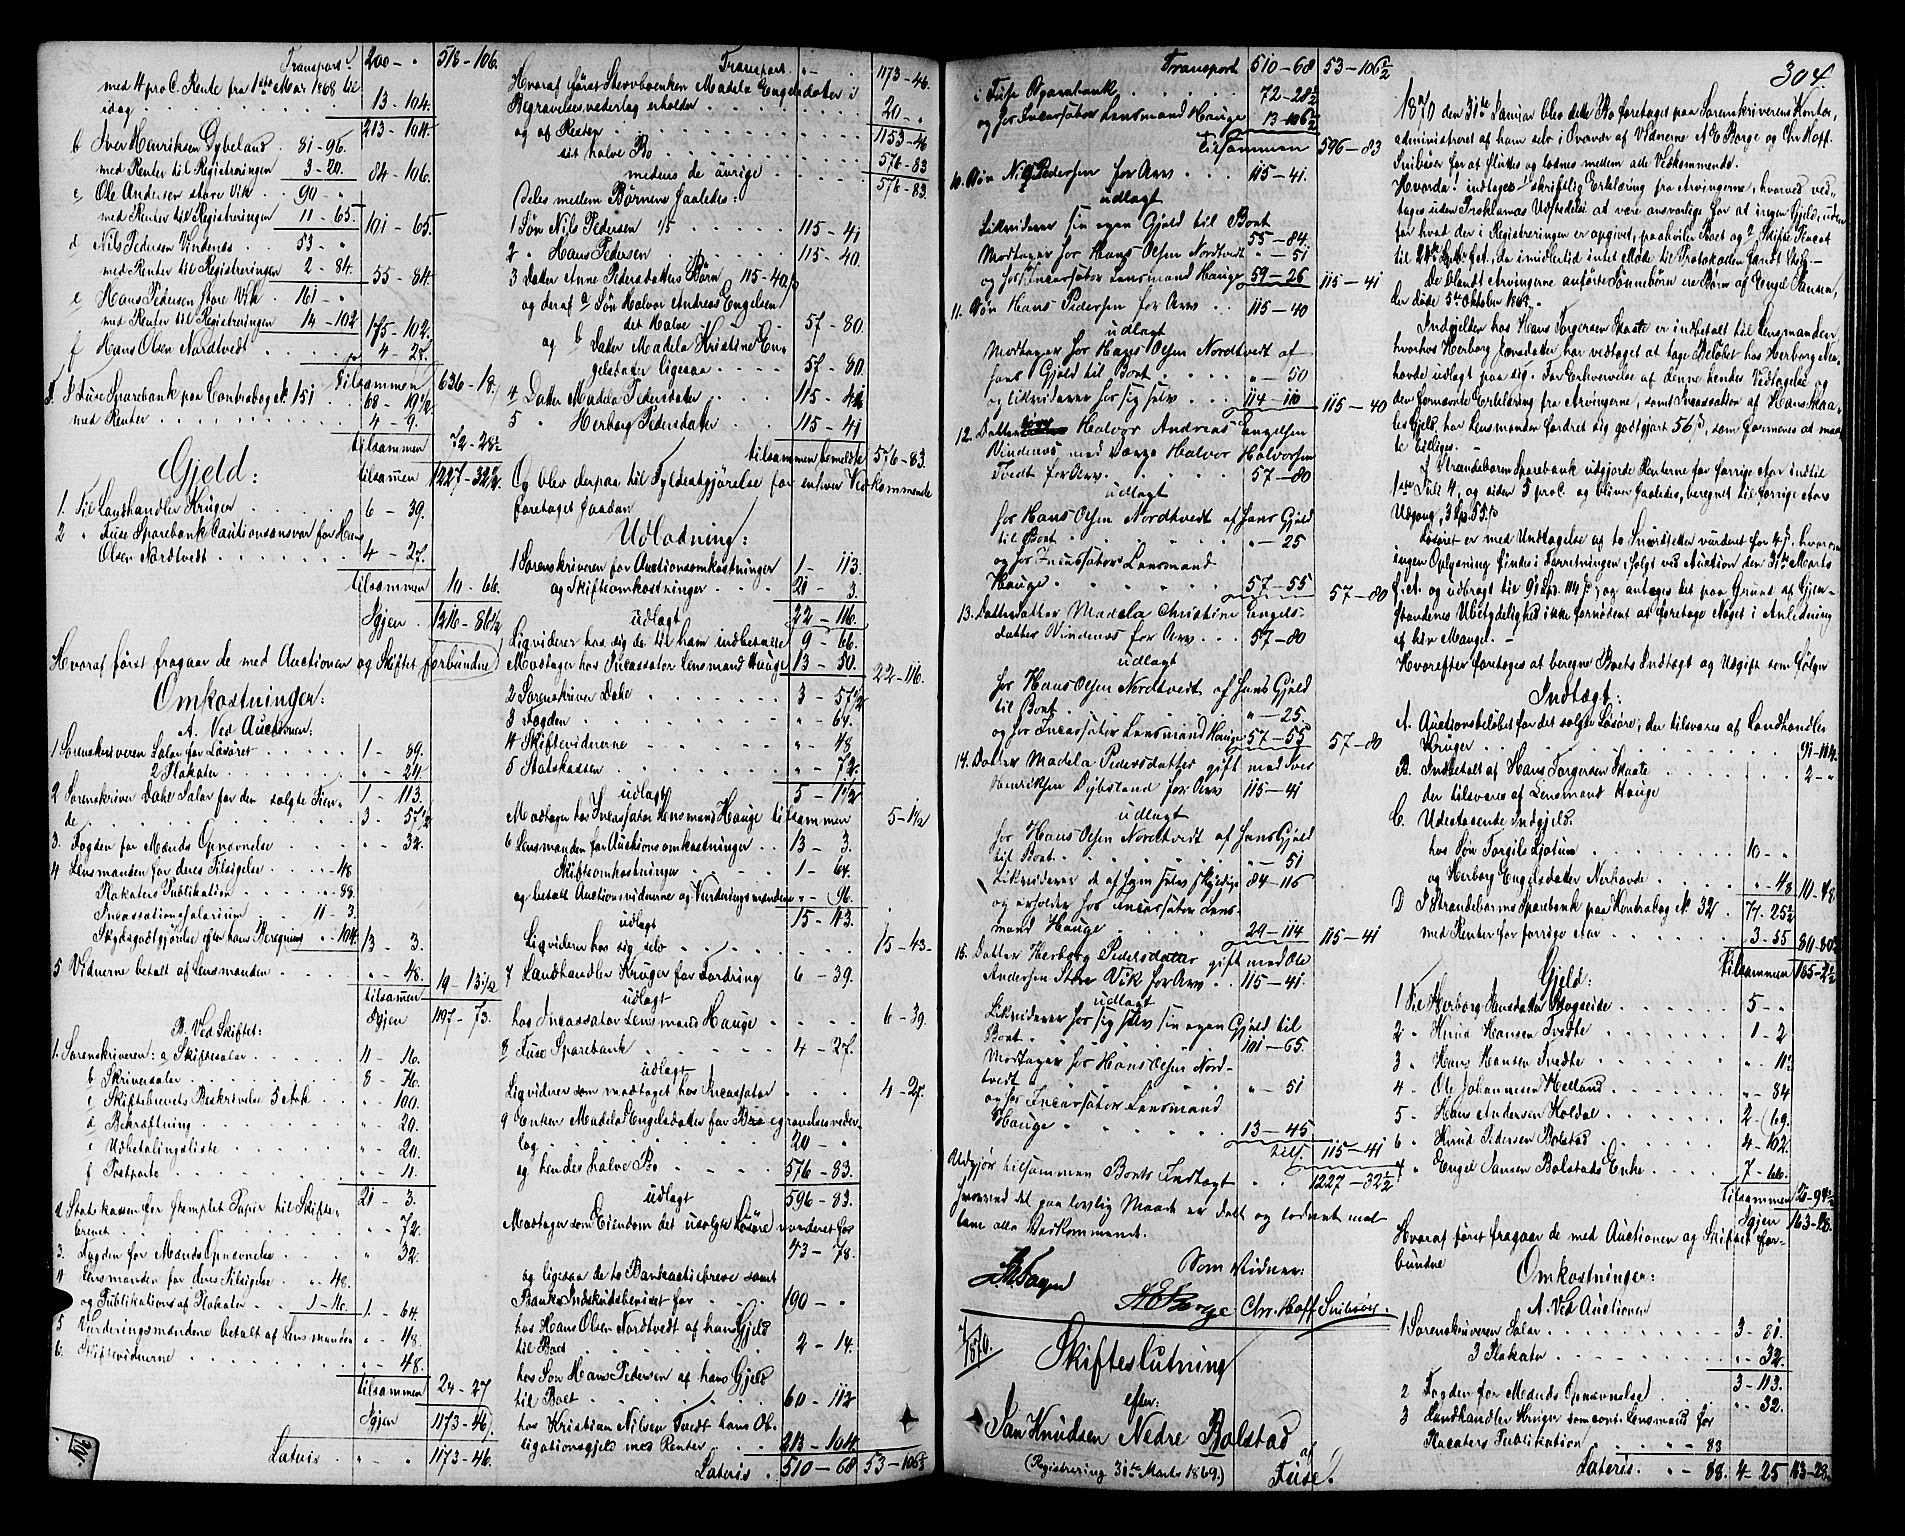 Transport. 200 - " 518 - 106.
med 4 proC. Rente fra 1ste Mai 1868 til
idag . . . 13 - 104.
213 - 104.
b Iver Henriksen Dybsland . 81 - 96.
med Renter til Registreringen 3 - 20. 84 - 106.
c Ole Andersen store Vik . 90 - "
med Renter til Registreringen 11 - 65. 101 - 65.
d Nils Pedersen Vindenæs . . 53 - "
med Renter til Registreringen 2 - 84. 55 - 84.
e Hans Pedersen Store Vik . 161 - "
med Renter til Registreringen 14 - 102 175 - 102.
f Hans Olsen Nordtvedt . . . 4 - 27.
Tilsammen 636 - 18.
I Fuse Sparebank paa Contrabog No. 151 . 68 - 19 1/2
med Renter . . . 4 - 9.
tilsammen 72 - 28 1/2
Gjeld: tilsammen 1227 - 32 1/2
1. Til Landhandler Krüger . . . 6 - 39.
2 " Fuse Sparebank Cautionsansvar for Hans
Olsen Nordtvedt . . . 4 - 27.
tilsammen 10 - 66.
Igjen 1216 - 86 1/2
Hvoraf först fragaar de med Auctionen og Skiftet forbundne
Omkostninger:
A. Ved Auctionen:
1 Sorenskriveren Salar for Lösöret . . . 1 - 89.
2 Plakater . . . " - 24.
1 - 113.
2 Sorenskriver Dahe Salar for den solgte Eien-
de . . . 3 - 57 1/2
3. Fogden for Mænds Opnævnelse . . " - 32.
4 Lensmanden for deres Tilsigelse . " - 48
Plakaters Publikation . . . " - 88.
Incassationssalarium . 11 - 3.
Skydsgodtgjörelse efter hans Beregning . " - 104. 13 - 3.
5 Vidnerne betalt af Lensmanden . . . " - 48.
tilsammen 19 - 13 1/2
Igjen 1197 - 73.
B. Ved Skiftet:
1. Sorenskriveren: a Skiftesalar . . . 11 - 16.
b Skriversalar . . . 8 - 76.
c Skiftebrevets Beskrivelse 5 Ark . . " - 100.
d Bekræftning . . . " - 20.
e Udbetalingsliste . . . " - 20
f Postporto . . . " - 11.
21 - 3.
2 Statskassen for stemplet Papir til Skifte-
brevet . . . " - 72.
3. Fogden for Mænds Opnævnelse . . . " 32.
4 Lensmanden for deres Tilsigelse . " - 48.
og Publikations af Plakater . . 1 - 16. 1 - 64.
5 Vurderingsmændene betalt af Lensmanden " - 48.
6. Skiftevidnerne . . . " - 48.
tilsammen 24 - 27
Igjen 1173 - 46.
Lateris . " - " 1173 - 46.
Transport. " - " 1173 - 46.
Hvoraf först Stervboenken Madela Engelsdatter i
Begravelsesvederlag erholder . . . 20 - "
og af Resten . . . 1153 - 46
sit halve Bo . . . 576 - 83
medens de övrige . . . 576 - 83.
Deles mellem Börnene saaledes:
1 Sön Nils Pedersen 1/5 . . 115 - 41
2 " Hans Pedersen . . . 115 - 40.
3 Datter Anne Pedersdatters Börn 115-40
og deraf a Sön Halvor Andreas Engelsen
det Halve . . . 57 - 80.
og b Datter Madela Kristine En-
gelsdatter ligesaa . . . 57 - 80.
4 Datter Madela Pedersdatter . . . 115 - 41
5 " Herborg Pedersdatter . . 115 - 41
tilsammen bemeldte 576 - 83.
Og blev derpaa til Fyldestgjörelse for enhver Vedkommende
foretaget saadan
Udlodning:
1 Sorenskriveren for Auctionsomkostninger 1 - 113.
og Skifteomkostninger . . 21 - 3.
udlagt 22 - 116.
Liqviderer hos sig de til ham indbetalte 9 - 66.
Modtager hos Incassator Lensmand Hauge 13 - 50. 22 - 116.
2 Sorenskriver Dahe . . . 3 - 57 1/2
3 Fogden . . . " - 64.
4 Skiftevidnerne . . . " - 48
5 Statskassen . . . " - 72.
udlagt 5 - 1 1/2
Modtager hos Incassator Lensmand Hauge tilsammen 5 - 1 1/2
6 Lensmanden for Auctionsomkostninger . . 13 - 3.
Skifteomkostninger . . . 1 - 64.
og betalt Auctionsvidnerne og Vurderingsmændene " - 96.
udlagt 15 - 43.
Liqviderer hos sig selv . . . 15 - 43.
7 Landhandler Krüger for Fordring 6 - 39.
udlagt
hos Incassator Lensmand Hauge . . . 6 - 39.
8 Fuse Sparebank . . . 4 - 27.
udlagt
Liqviderer som modtaget hos Incassator . . . 4 - 27.
9 Enken Madela Engelsdatter for Begravelsesveder-
lag . . . 20 - "
og hendes halve Bo . . . 576 - 83.
udlagt 596 - 83.
Modtager som Eiendom det usolgte Lösöre vurderet for
43 - 78.
og ligesaa de to Bankactiebreve samt
Banks Indskudsbeviset for . . . 190 - "
hos Hans Olsen Nordtvedt af hans Gjeld
til Boet . . . 2 - 14.
hos Sön Hans Pedersen af hans Gjeld
til Boet . . . 60 - 112
hos Kristian Nilsen Tvedt hans Ob-
ligationsgjeld med Renter . . 213 - 104.
Lateris . 510 - 68 53 - 106 1/2
304.
Transport 510 - 68 53 - 106 1/2
i Fuse Sparebank . . . 72 - 28 1/2
og hos Incassator Lensmand Hauge . 13 - 106 1/2
Tilsammen 596 - 83
10. Søn Nils Pedersen for Arv . . . 115 - 41.
udlagt
Likviderer sin egen Gjeld til Boet
55 - 84.
Modtager hos Hans Olsen Nordtvedt " - 51
og hos Incassator Lensmand Hauge 59 - 26 115 - 41
11. Søn Hans Pedersen for Arv . . 115 - 40
udlagt
Modtager hos Hans Olsen Nordtvedt af
hans Gjeld til Boet . . . " - 50
og likviderer hos sig selv . . 114 - 110 115 - 40
12. Dattersøn Halvor Andreas Engelsen
Vindenes med Værge Halvor Halvorsen
Tvedt for Arv. . . . 57 - 80
udlagt
hos Hans Olsen Nordtvedt af hans Gjeld
til Boet . . . " - 25
og hos Incassator Lensmand
Hauge . . . 57 - 55 57 - 80
13. Datterdatter Madela Christine Engels-
datter Vindenes for Arv . . . 57 - 80
udlagt
hos Hans Olsen Nordtvedt af hans Gjeld
til Boet . . . " - 25.
og hos Incassator Lensmand Hauge 57 - 55 57 - 80
14. Datter Madela Pedersdatter gift med Iver
Henriksen Dybsland for Arv 115 - 41
udlagt
hos Hans Olsen Nordtvedt af hans Gjeld
til Boet . . . " - 51
Likviderer de af ham selv skyldige 84 - 106
og erholder hos Incassator Lens-
mand Hauge . . . 29 - 114 115 - 41
15. Datter Herborg Pedersdatter gift med Ole
Andersen Store Vik for Arv . . 115 - 41.
udlagt
Likviderer hos sig selv sin egen Gjeld til
Boet . . . 101 - 65.
Modtager hos Hans Olsen Nord-
tvedt . . . " - 51
og hos Incassator Lensmand
Hauge . . . 13 - 45
tils. 115 - 41
Udgjør tilsammen Boets Indtægt . . 1227 - 32 1/2
hvorved det paa lovlig Maade er delt og loddet mel-
lem alle Vedkommende.
Som Vidner:
A E Børge Chr. Hoff Sniksör.
7/1870.
Skifteslutning
efter:
Jan Knudsen Nedre Bolstad
af
(Registrering 31te Marts 1869.) Fuse.
1870 den 31te Januar blev dette Bo foretaget paa Sorenskriverens Kontor,
administreret af ham selv i Overvær af Vidnerne A E Börge og Chr. Hoff
Sniksör for at sluttes og loddes mellem alle Vedkommende.
Hvorda! indtages 1 skriftlig Erklæring fra Arvingerne, hvorved ved-
tages uden Proklamas Udstedelse at være ansvarlige for at ingen Gjeld, uden
for hvad der i Registreringen er opgivet, paahviler Boet og 2 Skifte
til d.s. at imidlertid intet Møde til Protokollen fandt Sted. -
De blandt Arvingerne anførte Sönnebörn ere Börn af Engel Jansen,
der döde 5te Oktober 1869. -
Indgjelden hos Hans Torgersen Skaate er indbetalt til Lensmanden
hvorhos Herborg Jansdatter har vedtaget at tage Belöbet hos Herborg Ner-
hovde udlagt paa sig. For Erhvervelse af denne hendes Vedtagelse og
den fornævnte Erklæring fra Arvingerne, samt Incassation af Hans Skaa-
tes Gjeld, har Lensmanden fordret sig godtgjort 56 ß, som formenes at maat-
te billiges. -
I Strandebarms Sparebank udgjorde Renterne for forrige Aar indtil
1ste Juli 4, og siden 5 proC. og bliver saaledes, beregnet til forrige Aars
Udgang, 3 Sp. 55 ß
Lösöret er med Undtagelse af to vurderet for 4 ß, hvorom
ingen Oplysning findes i Forretningen, solgt ved Auction den 31te Marts
f.A. og udbragt til 91 Sp. 114 ß, og antages det paa Grund af Gjen-
standenes Ubetydelighed ikke fornödent at foretage Noget i Anledning
af hiin Mangel. -
Hvorefter foretoges at beregne Boets Indtægt og Udgift som fölger
Indtægt:
A. Auctionsbelöbet for det solgte Lösöre, der tilsvares af Landhandler
Krüger . . . 91 - 114.
B. Indbetalt af Hans Torgersen Skaate . . . 2 - "
der tilsvares af Lensmand Hauge
C. Udestaaende Indgjeld.
hos Sön Torgils Ljotun . . . 10 - "
og Herborg Engelsdatter Nerhovde . . . " - 48 10 - 48
D I Strandebarms Sparebank paa Kontrabog No. 32 . 77 - 25 1/2
med Renter for forrige Aar . . . 3 - 55 80 - 80 1/2
Tilsammen 185 - 2 1/2
Gjeld:
1 Til Herborg Jansdatter Skogseide . . . 5 - "
2 " Knud Hansen Tvedte . . . 1 - 2
3 " Hans Hansen Tvedte . . . " - 112
4 - Ole Johannesen Helland . . . " - 84
5 - Hans Andersen Holdal . . . 2 - 69.
6 " Knud Pedersen Bolstad . . . 4 - 102.
7 " Engel Jansen Bolstads Enke . . . 7 - 66.
tilsammen
Igjen 163 - 28.
Hvoraf först fragaar de med Auctionen og Skiftet for-
bundne
Omkostninger:
A. Ved Auctionen
1 Sorenskriveren Salar . . . 3 - 81.
3 Plakater . . . " - 32.
3 - 113.
2 Fogden for Mænds Opnævnelse . . " - 32.
3 Landhandler Krüger som const. Lensmand for
Placaters Publikation . . . " - 88
Lateris . " - 88. 4 - 25 163 - 28.